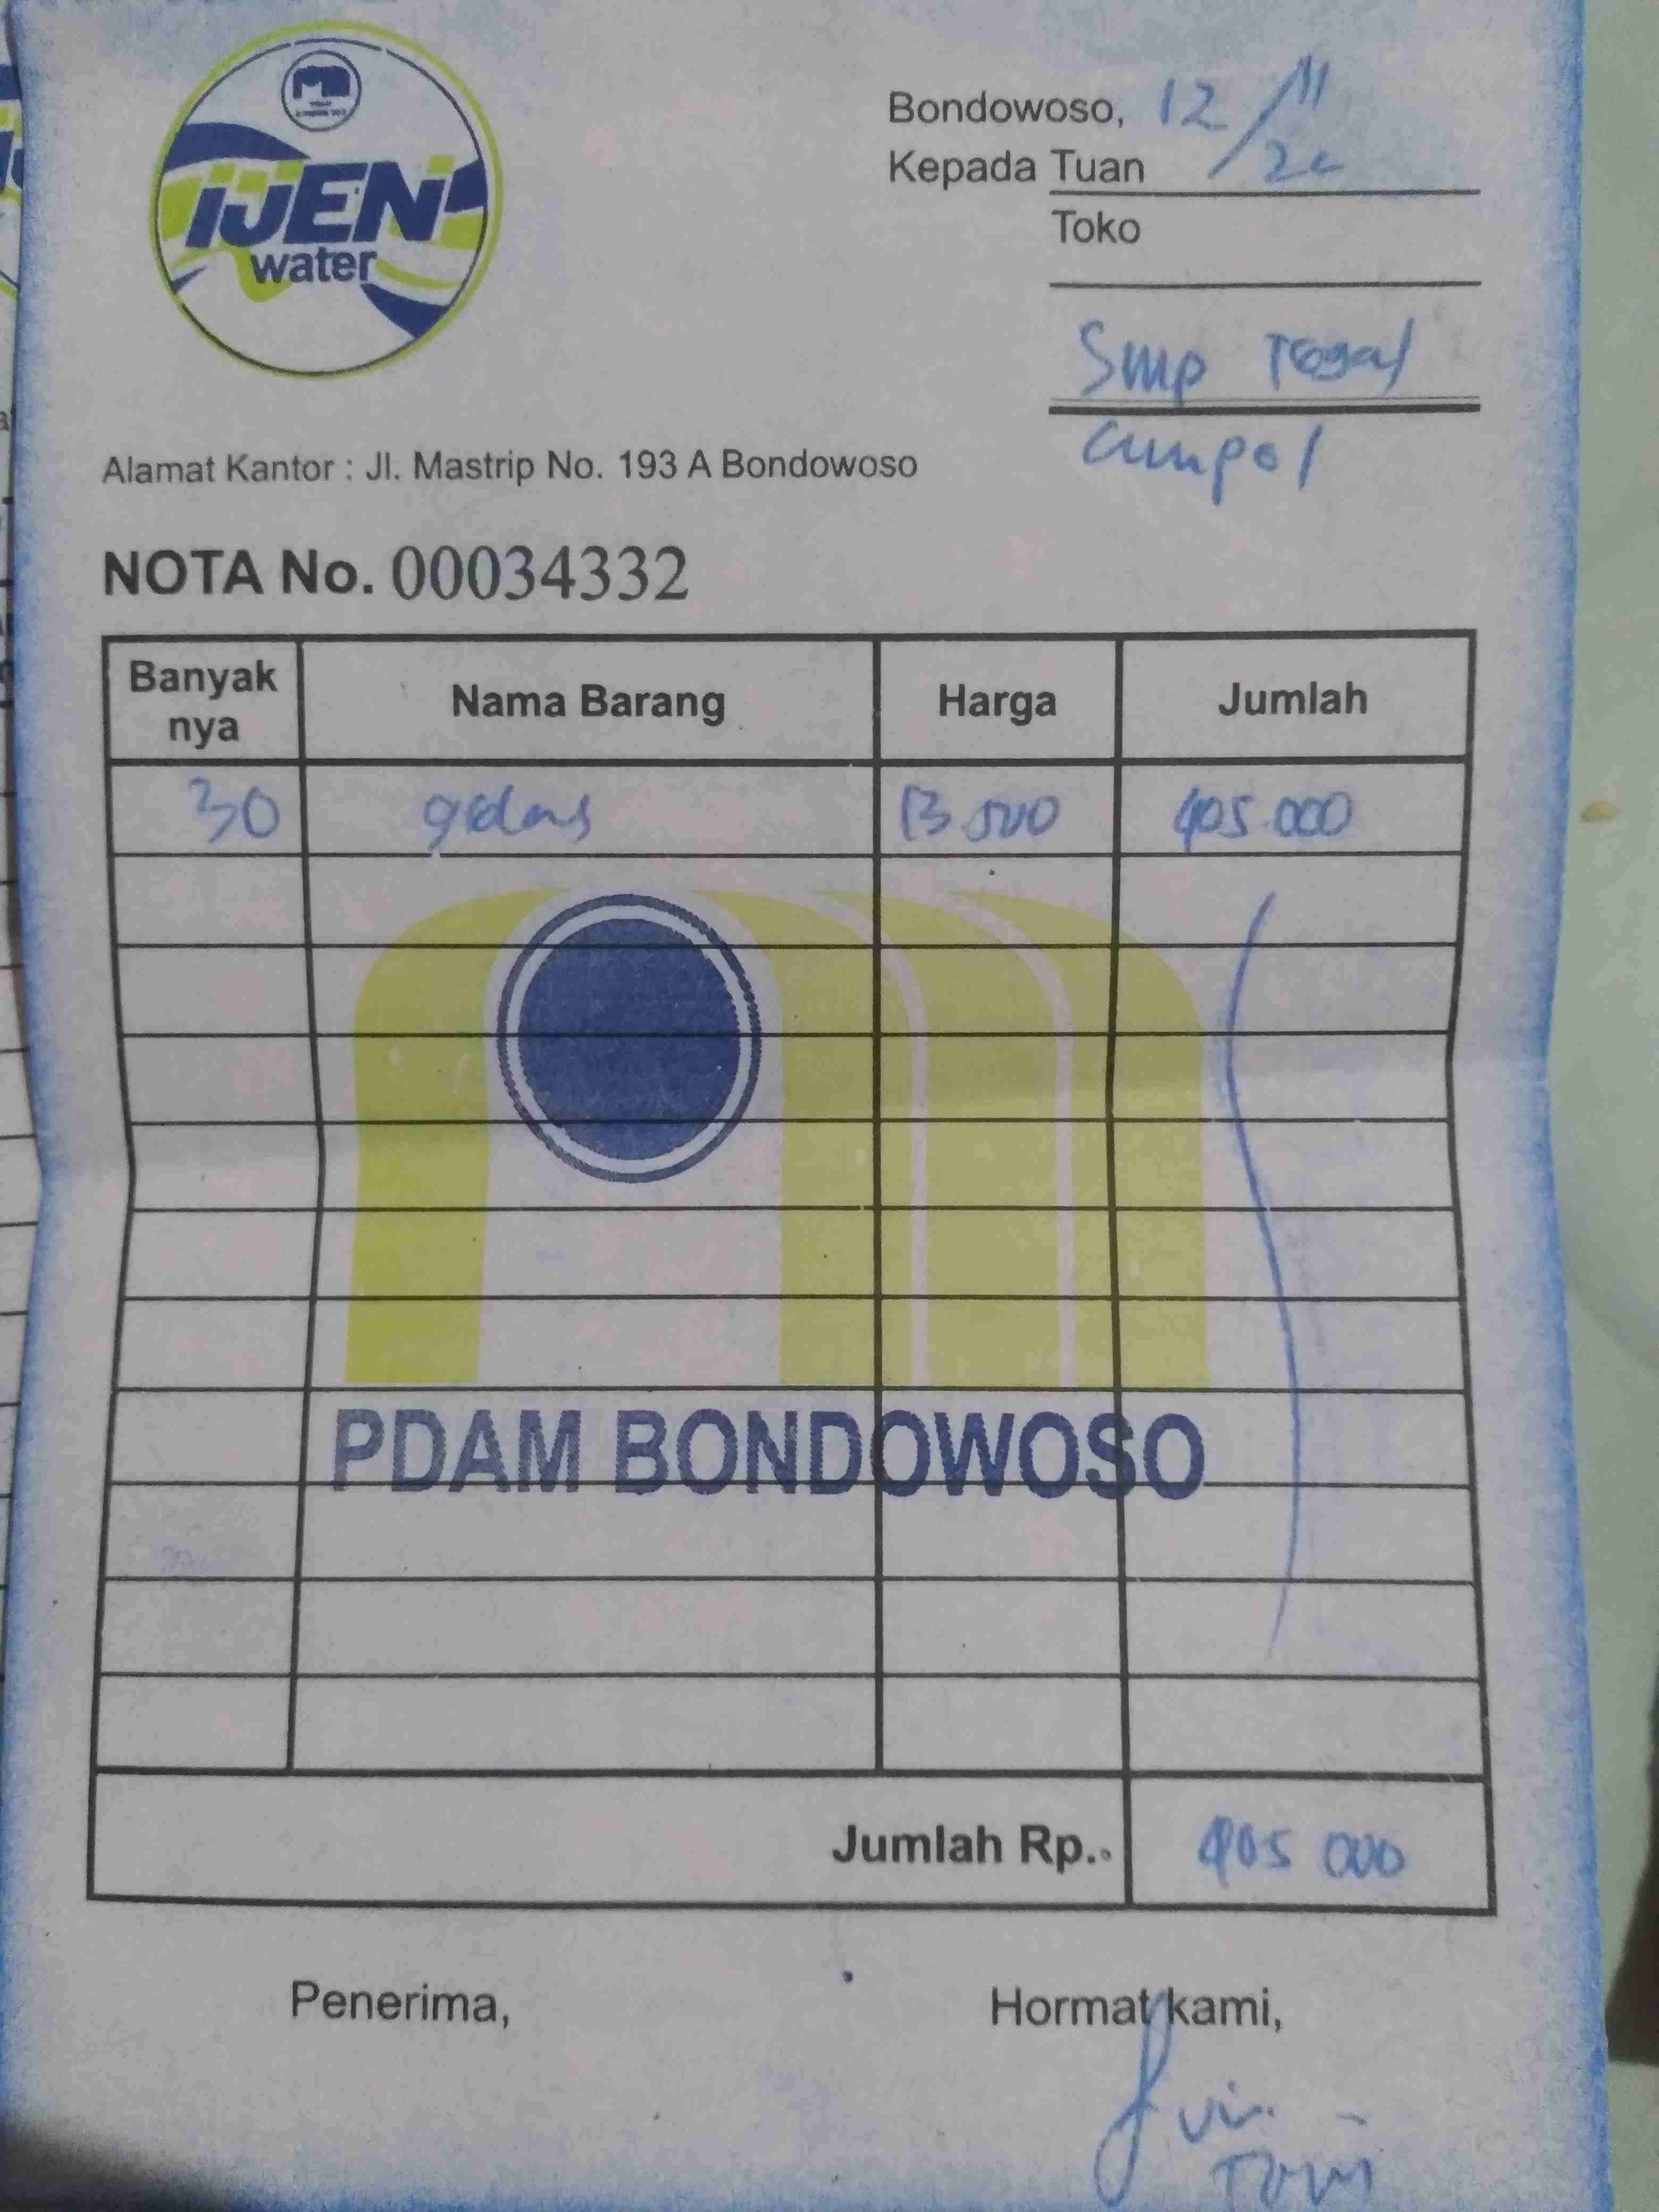 IJEN
water
Bondowoso, 12/11
Kepada Tuan
Toko
Smp Tegal
Ampel
Alamat Kantor : Jl. Mastrip No. 193 A Bondowoso
NOTA No. 00034332
Banyak nya Nama Barang Harga Jumlah
30 gelas 13.500 405.000
PDAM BONDOWOSO
Jumlah Rp. 405 000
Penerima, Hormat kami,